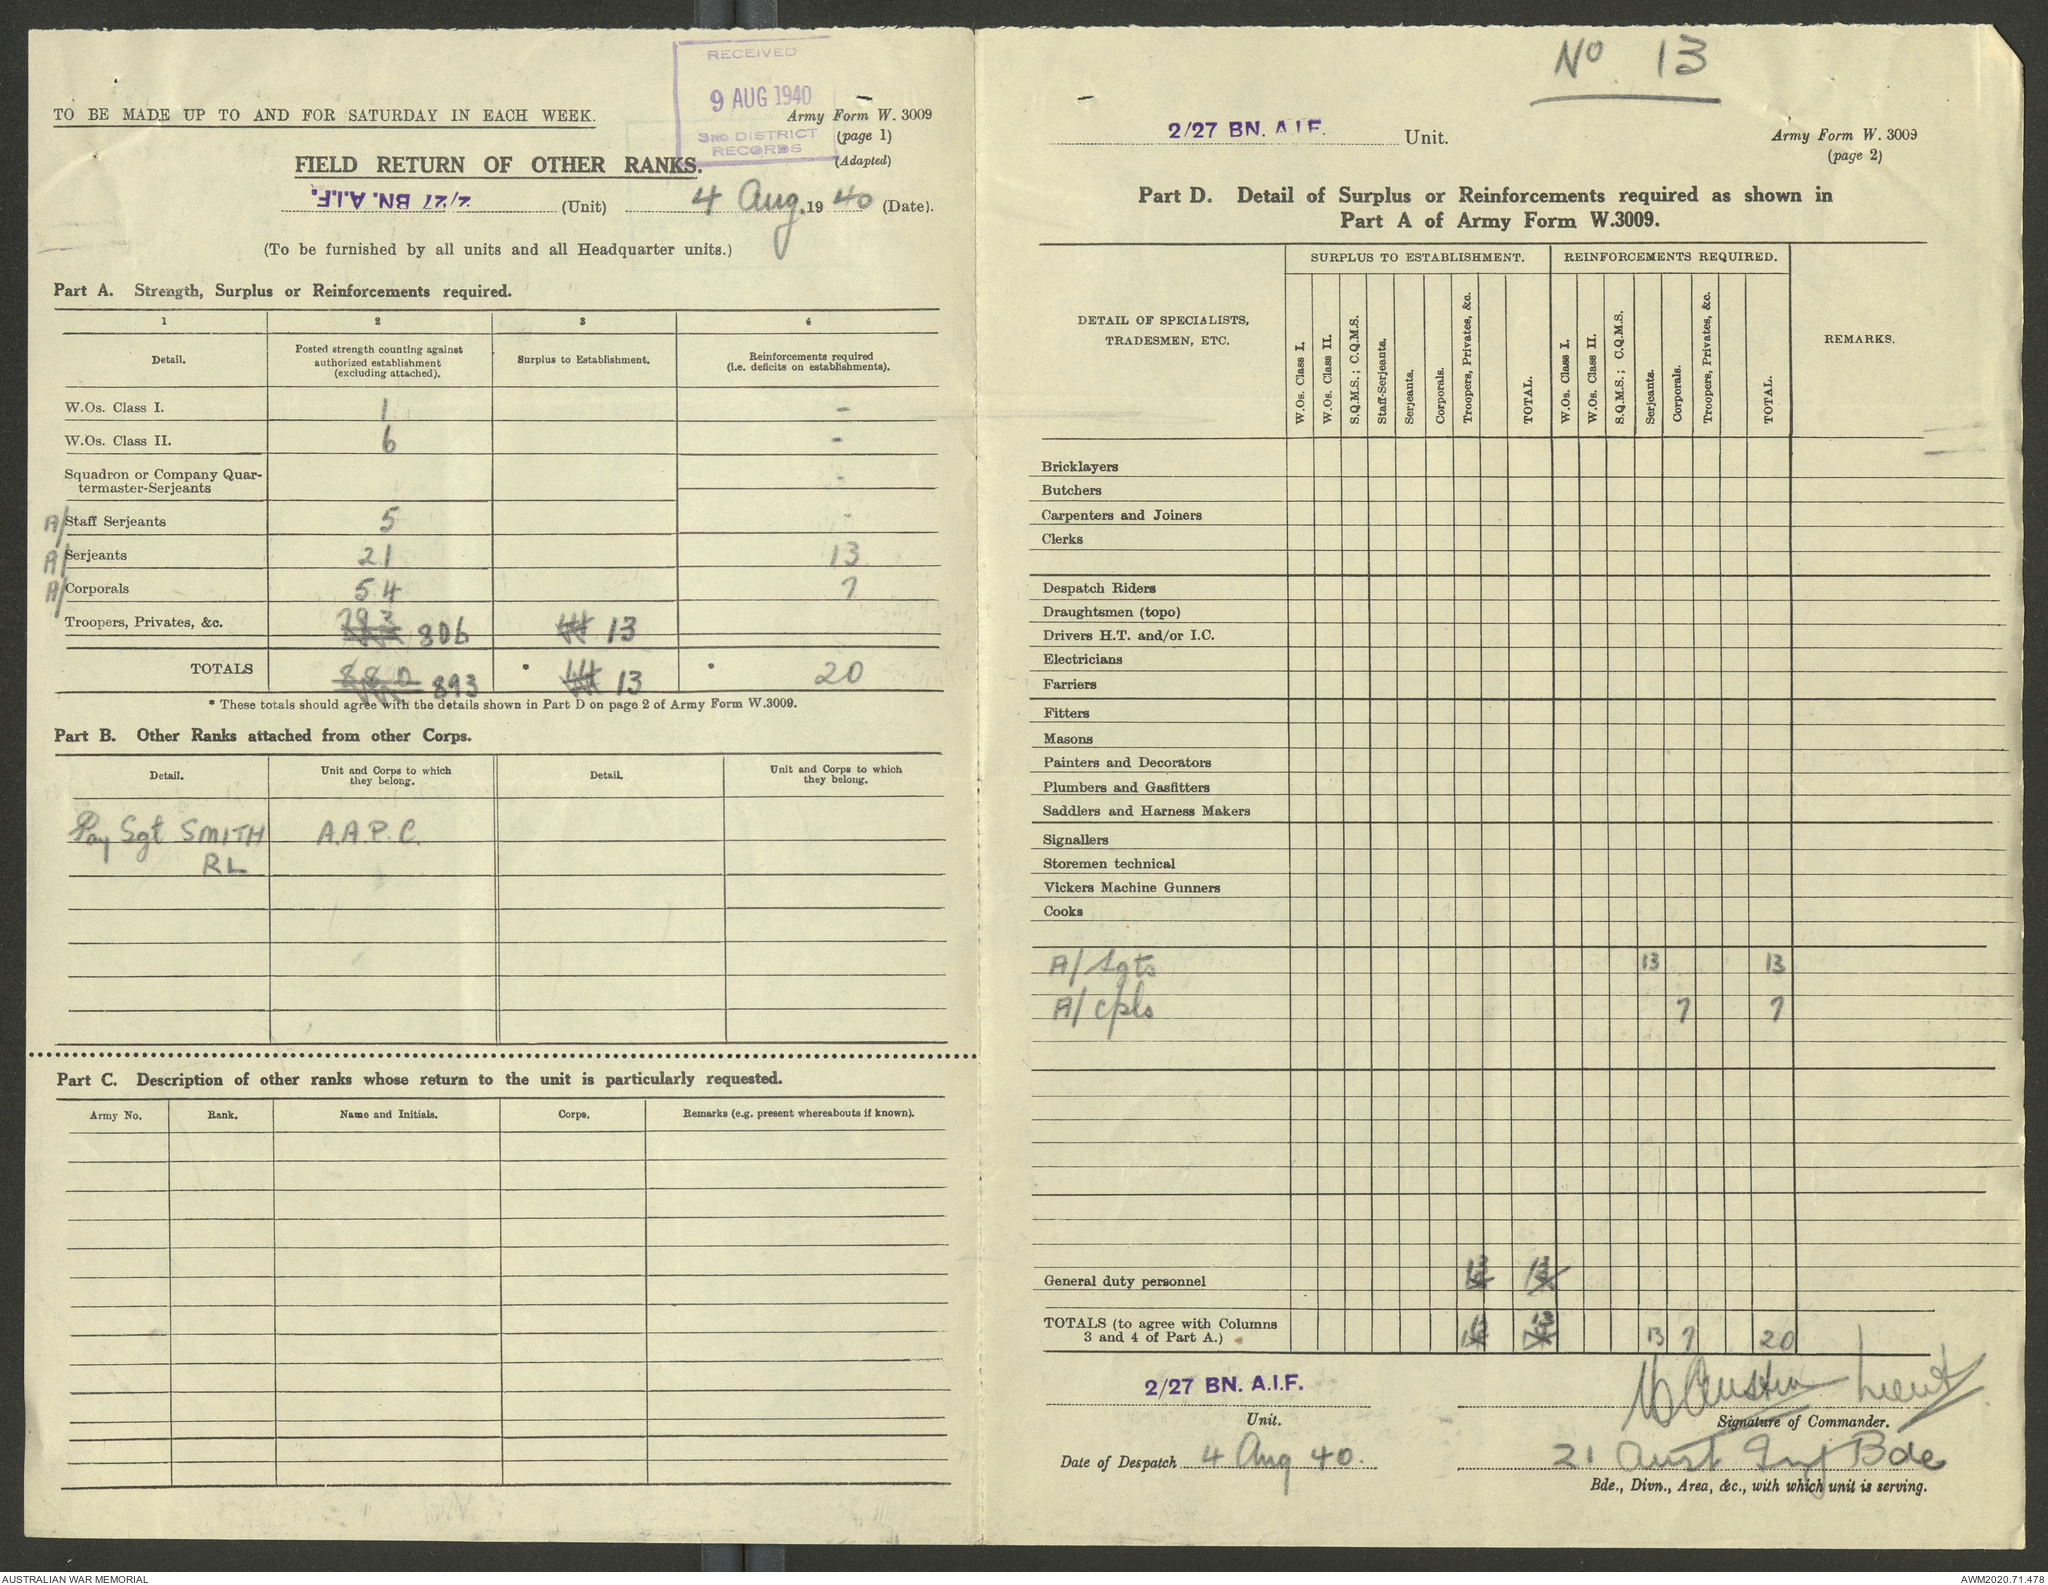 RECEIVED
9 AUG 1940
3RD DISTRICT
RECORDS
TO BE MADE UP TO AND FOR SATURDAY IN EACH WEEK.
Army Form W. 3009
(page 1)
(Adapted)
FIELD RETURN OF OTHER RANKS.
2/27 BN. A.I.F. (Unit) 4 Aug. 1940 (Date).
(To be furnished by all units and all Headquarter units.)
Part A. Strength, Surplus or Reinforcements required.
1 2 3 4
Detail. Posted strength counting against authorized establishment (excluding attached). Surplus to Establishment. Reinforcements required (i.e. deficits on establishments).
W.Os. Class I. 1 -
W.Os. Class II. 6 -
Squadron or Company Quar-
termaster-Serjeants -
A/ Staff Serjeants 5 -
A/ Serjeants 21 13
A/ Corporals 54 7
Troopers, Privates, &c. 793 806 13
TOTALS 880 893 * 13 * 20
* These totals should agree with the details shown in Part D on page 2 of Army Form W.3009.
Part B. Other Ranks attached from other Corps.
Detail. Unit and Corps to which they belong. Detail. Unit and Corps to which they belong.
Pay Sgt SMITH A.A.P.C.
RL
Part C. Description of other ranks whose return to the unit is particularly requested.
Army No. Rank. Name and Initials. Corps. Remarks (e.g. present whereabouts if known).
No. 13
2/27 BN. A.I.F. Unit.
Army Form W. 3009
(page 2)
Part D. Detail of Surplus or Reinforcements required as shown in
Part A of Army Form W.3009.
SURPLUS TO ESTABLISHMENT. REINFORCEMENTS REQUIRED.
DETAIL OF SPECIALISTS,
TRADESMEN, ETC.
W.Os. Class I.
W.Os. Class II.
S.Q.M.S.; C.Q.M.S.
Staff-Serjeants.
Serjeants.
Corporals.
Troopers, Privates, &c.
TOTAL.
W.Os. Class I.
W.Os. Class II.
S.Q.M.S.; C.Q.M.S.
Serjeants.
Corporals.
Troopers, Privates, &c.
TOTAL.
REMARKS.
Bricklayers
Butchers
Carpenters and Joiners
Clerks
Despatch Riders
Draughtsmen (topo)
Drivers H.T. and/or I.C.
Electricians
Farriers
Fitters
Masons
Painters and Decorators
Plumbers and Gasfitters
Saddlers and Harness Makers
Signallers
Storemen technical
Vickers Machine Gunners
Cooks
A/ Sgts 13 13
A/ Cpls 7 7
General duty personnel 13 13
TOTALS (to agree with Columns
3 and 4 of Part A.) 13 13 13 7 20
2/27 BN. A.I.F.
Unit.
Austin Lieut
Signature of Commander.
Date of Despatch 4 Aug 40.
21 Aust Inf Bde
Bde., Divn., Area, &c., with which unit is serving.
AUSTRALIAN WAR MEMORIAL
AWM2020.71.478